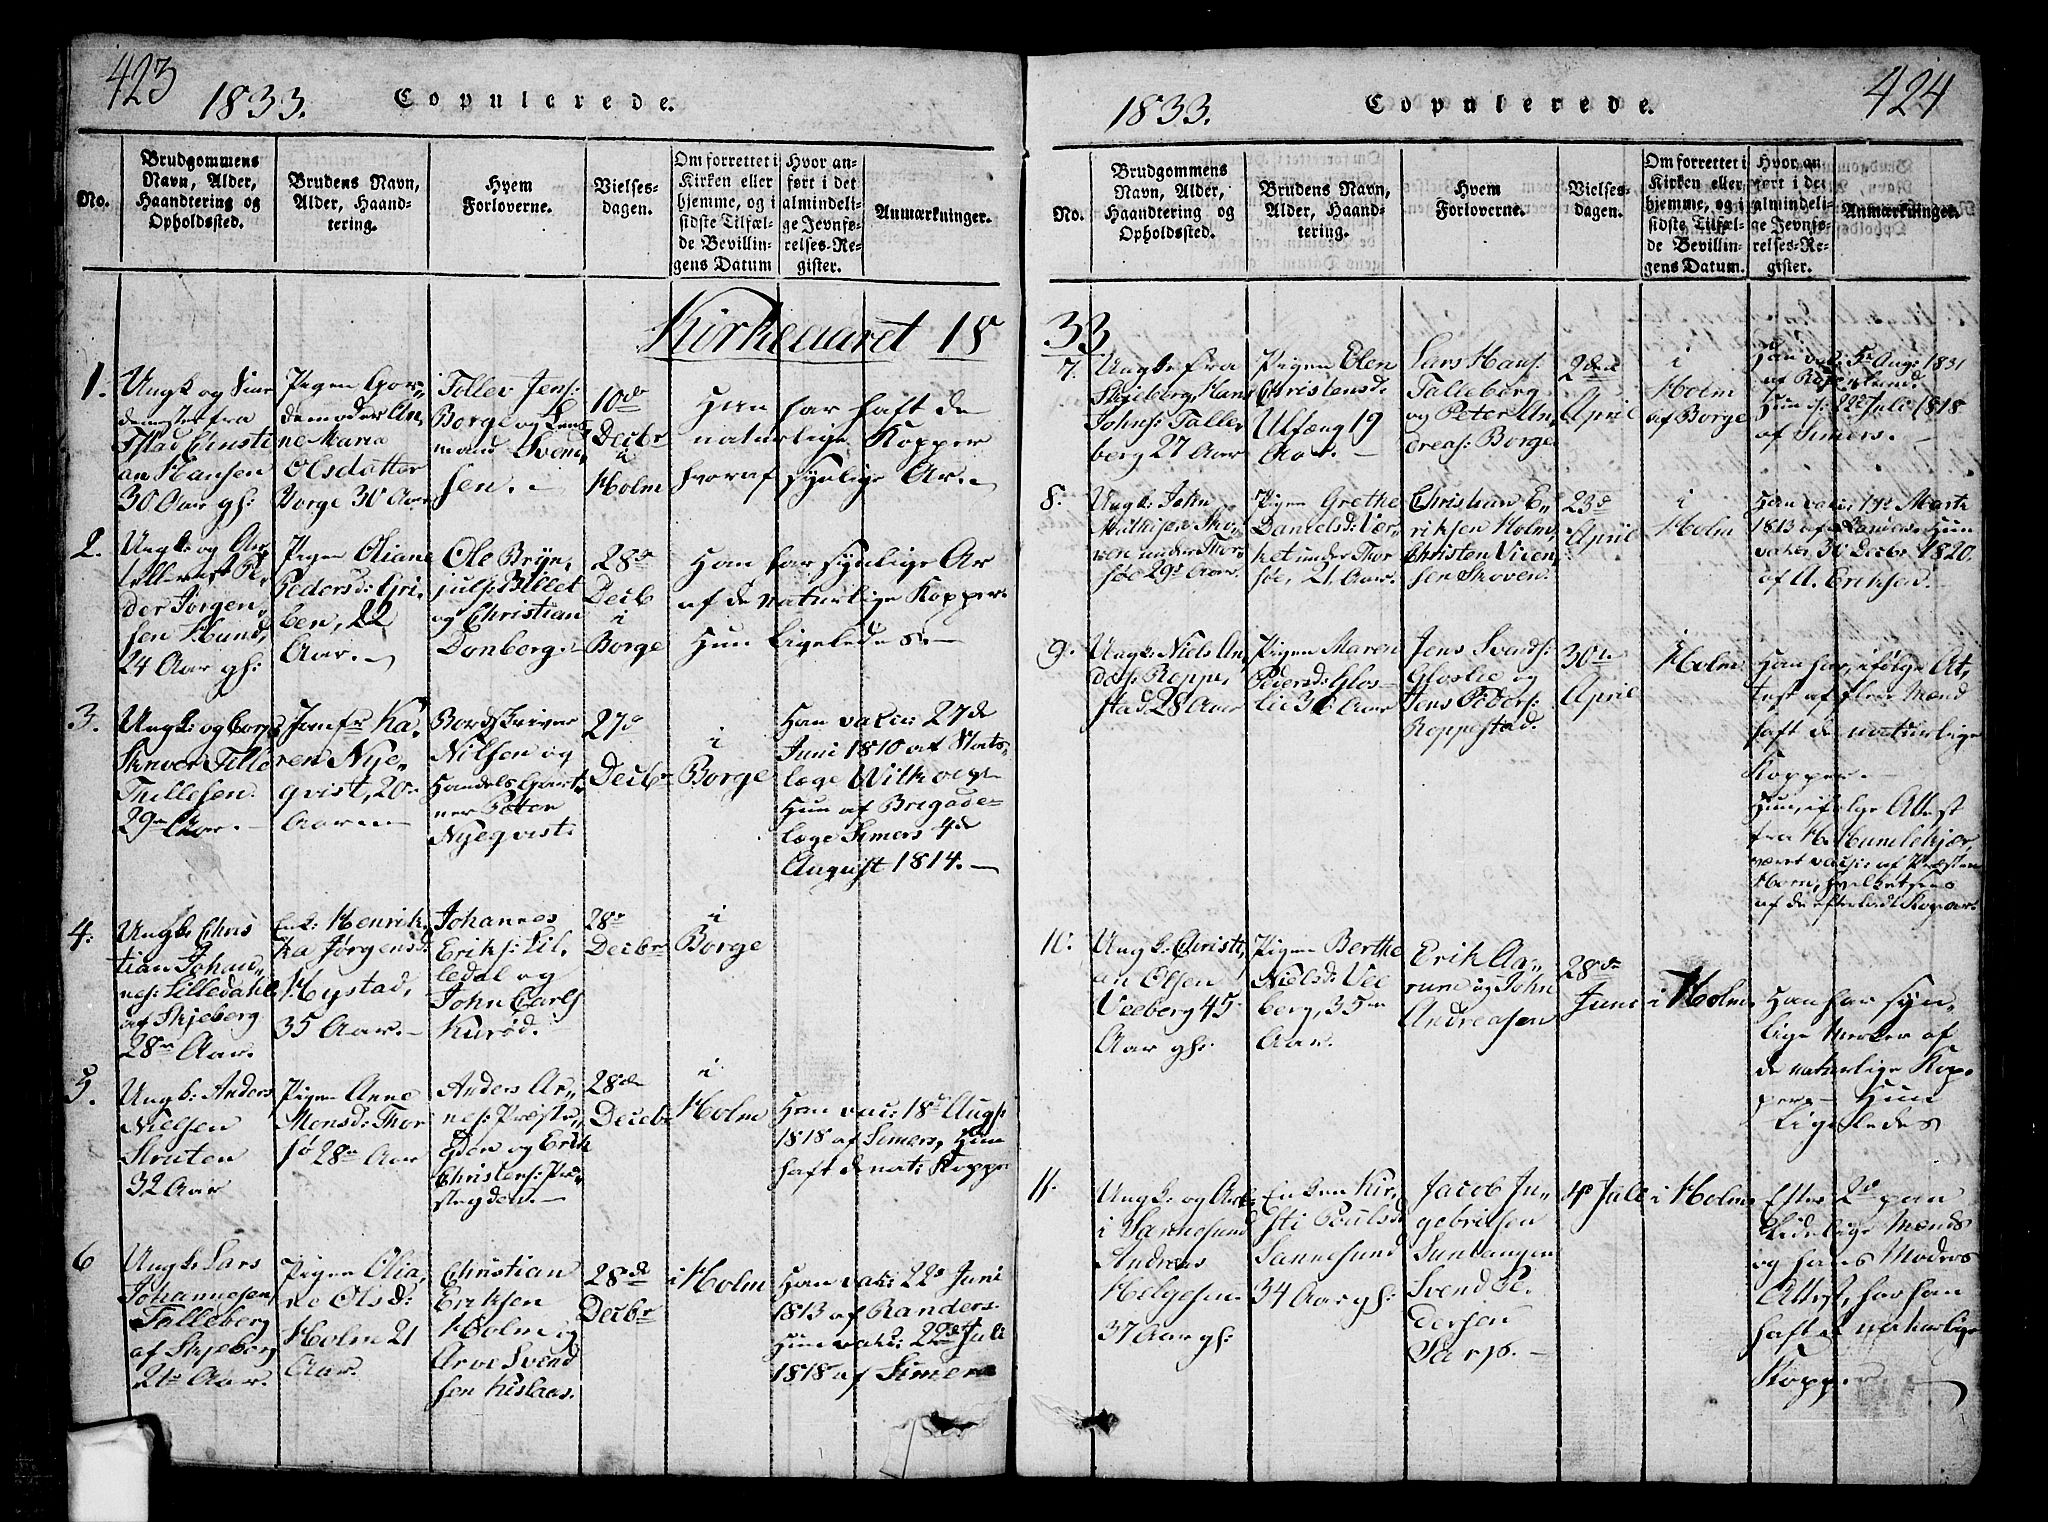 423
1833.
Copulerede.
No.
Brudgommens
Navn, Alder,
Haandtering og
Opholdssted.
Brudens Navn,
Alder, Haand-
tering.
Hvem
Forloverne.
Vielses-
dagen.
Om forrettet i
Kirken eller
hjemme, og i
sidste Tilfæl-
de Bevillin-
gens Datum
Hvor an-
ført i det
almindeli-
ge Jevnfø-
relses-Re-
gister.
Anmærkninger.
Kirkeaaret 18
1.
Ungk og
fra
Christi
an Hansen
30 Aar gh:
Pigen Gor
demoder An
ne Maria
Olsdatter
Borge 30 Aar
Tollev Jens:
Borge og Lens
mand Svend
sen. -
10de
Decbr
i
Holm
Han har haft de
naturlige Kopper
hvoraf synlige Ar.
2.
Ungk: og Ar
Pe
der Jørgen
sen Hund,
24 Aar gh:
Pigen Oliane
Pedersd: Gri
ben, 22
Aar. -
Ole Bryn
julfs:
og Christian
Donberg. -
28de
Decb
i
Borge
Han har synlige Ar
af de naturlige Kopper.
Hun Ligeledes -
3.
Ungk: og Corps
Skriver Tille
Thillesen
29 Aar. -
Jomfr Ka
ren Nye
qvist, 20
Aar
Bordskriver
Nilsen og
Handels Gart
ner Peter
Nyeqvist:
27de
Decbr
i
Borge
Han vaci: 27de
Juni 1810 af Stats
læge Wilhoeg
Hun af Brigade-
læge Simers 4de
August 1814. -
4.
Ungk: Chris
tian Johan
nes: Lilledahl
af Skjeberg
28 Aar.
Enk: Henrik
ka Jørgensd:
Hystad,
35 Aar. -
Johannes
Eriks: Lil
ledal og
John Carls
Kurød.
28de
Decbr
i
Borge
5.
Ungk: Anders
Nielsen
Struten
32 Aar
Pigen Anne
Monsd: Thor
sø 28 Aar
Anders Ar
nes: Præste
gden og Erik
Christens: Præ
stegden -
28de
Decbr
i
Holm
Han vac: 18de Aug:
1818 af Simers, Hun
haft de nat: Kopper
6
Ungk: Lars
Johannesen
Talleberg
af Skjeberg
21 Aar.
Pigen Olia
ne Olsd:
Holm 21
Aar.
Christian
Eriksen
Holm og
Arve Svend
sen Kislaas.
28de
Decbr
i Holm
Han vac: 22de Juni
1813 af Randers.
Hun vac: 22de Juli
1818 af Simers
424
1833.
Copulerede.
No.
Brudgommens
Navn, Alder,
Haandtering og
Opholdssted.
Brudens Navn,
Alder, Haand-
tering.
Hvem
Forloverne.
Vielses-
dagen.
Om forrettet i
Kirken eller
hjemme, og i
sidste Tilfæl-
de Bevillin-
gens Datum.
Hvor an-
ført i det
almindeli-
ge Jevnfø-
relses-Re-
gister.
Anmærkninger.
33
7.
Ungk: fra
Skjeberg, Hans
Johns: Talle
berg 27 Aar
Pigen Elen
Christensd:
Ulfæng 19
Aar. -
Lars Hans:
Talleberg
og Peter An
dreas: Borge
28de
April
i
Holm
af Borge
Han vac: 5 Aug: 1831
af
Hun 22de Juli 1818
af Simers. -
8.
Ungk: John
Sko
ven under Thor
søe 29 Aar.
Pigen Grethe
Danielsd: Vær
ket under Thor
søe, 21 Aar.
Christian E
riksen Holm,
Christen Vicen
sen Skoven.
23de
April
i
Holm
Han vaci: 17de Marts
1813 af Hun
vac: 30 Decbr 1820.
af A. Eriksen.
9.
Ungk: Niels An
ders: Roppe
stad 28 Aar
Pigen Maren
Pedersd: Glos
lie 30 Aar
Jens Svends:
Gloslie og
Jens Peders:
Roppestad.
30te
April
i
Holm
Han har, ifølge At
test af flere Mænd
haft de naturlige
Kopper. -
Hun, ifølge Attest
fra H. Humlekjær,
været vacine af Præsten
Horn, hvilket sees
af de efterladte Kopar
10.
Ungk: Christi
an Olsen
Veeberg 45
Aar gh:
Pigen Berthe
Nielsd: Vee
berg, 35
Aar.
Erik Aa
rum og John
Andreasen
28de
Juni
i Holm
Han har syn
lige Merker af
de naturlige Kop
per - Hun
Ligeledes
11.
Ungk: og Arb:
i Sannesund
Andreas
Helgesen
37 Aar gh:
Enken Kir
sti Poulsd
Sannesund
34 Aar gh:
Jacob In
gebretsen
Sundløkken
Svend Pe
dersen
Sarp. -
4de Juli
i Holm
Efter 2de paa
lidelige Mænds
og hans Moders
Attest, har han
haft de naturlige
Kopper -